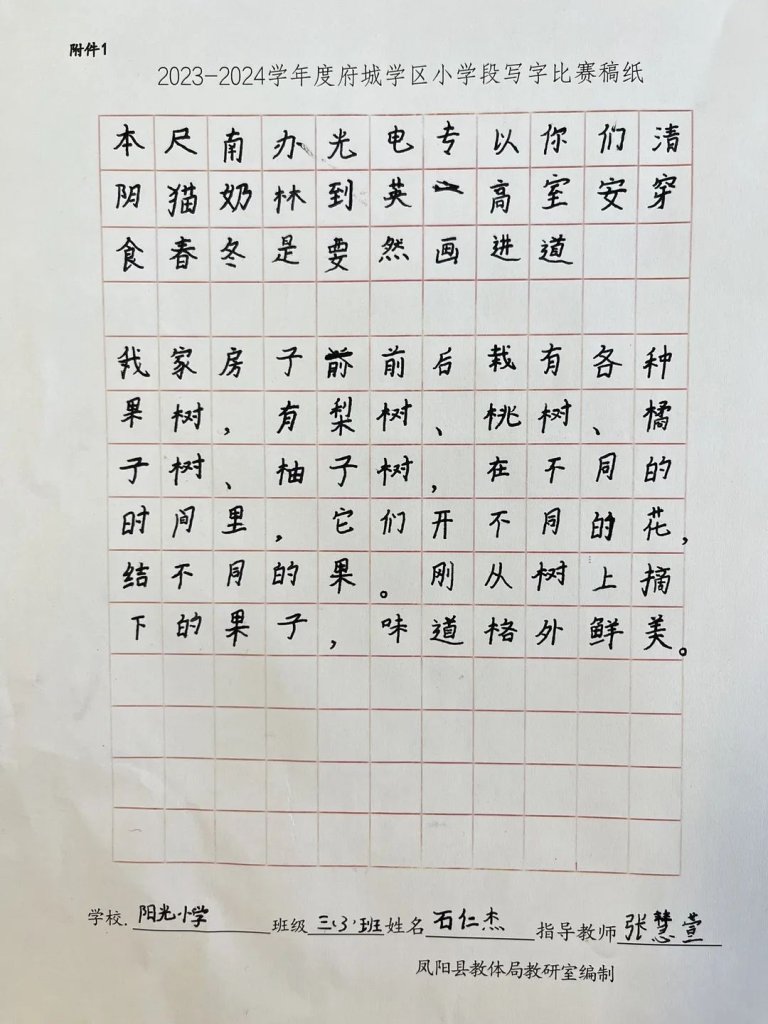 附件1
2023-2024学年度府城学区小学段写字比赛稿纸
本尺南办光电专以你们清
阴猫奶林到英一高室安穿
食春冬是要然画进道
我家房子前前后栽有各种
果树，有梨树、桃树、橘
子树、柚子树，在不同的
时间里，它们开不同的花，
结不同的果。刚从树上摘
下的果子，味道格外鲜美。
学校.阳光小学 班级三(3)班 姓名石仁杰 指导教师张慧萱
凤阳县教体局教研室编制